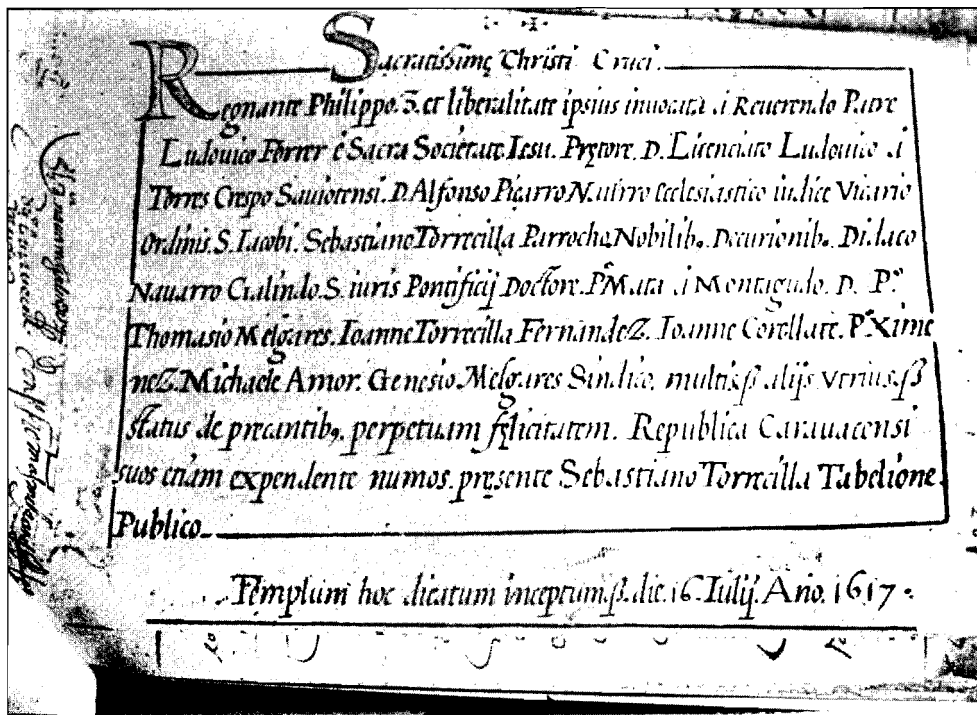 Sacratissimę Christi Cruci.
Regnante Philippo. 3. et liberalitate ipsius invocata a Reuerendo Patre
Ludouico Ferrer é Sacra Societate Iesu. Prętore. D. Licenciato Ludouico a
Torres Crespo Sauiotensi. D. Alfonso Piçarro Nauarro Ecclesiastico iudice Vicario
Ordinis. S. Iacobi. Sebastiano Torrecilla Parrocho, Nobilibꝰ. Decurionibꝰ. Didaco
Nauarro Galindo. S. iuris Pontificij Doctore. Pº Mata a Montagudo. D. Pº.
Thomasio Melgares. Ioanne Torrecilla FernandeZ. Ioanne Corellate. Pº Xime
neZ. Michaele Amor. Genesio Melgares Sindico, multisqß alijs Vtriusqß
status de precantibꝰ. perpetuam fęlicitatem. Republica Carauacensi
suos etiam expendente numos. pręsente Sebastiano Torrecilla Tabelione
Publico
Templum hoc dicatum inceptumqß. die. 16. Iulij. Año. 1617.